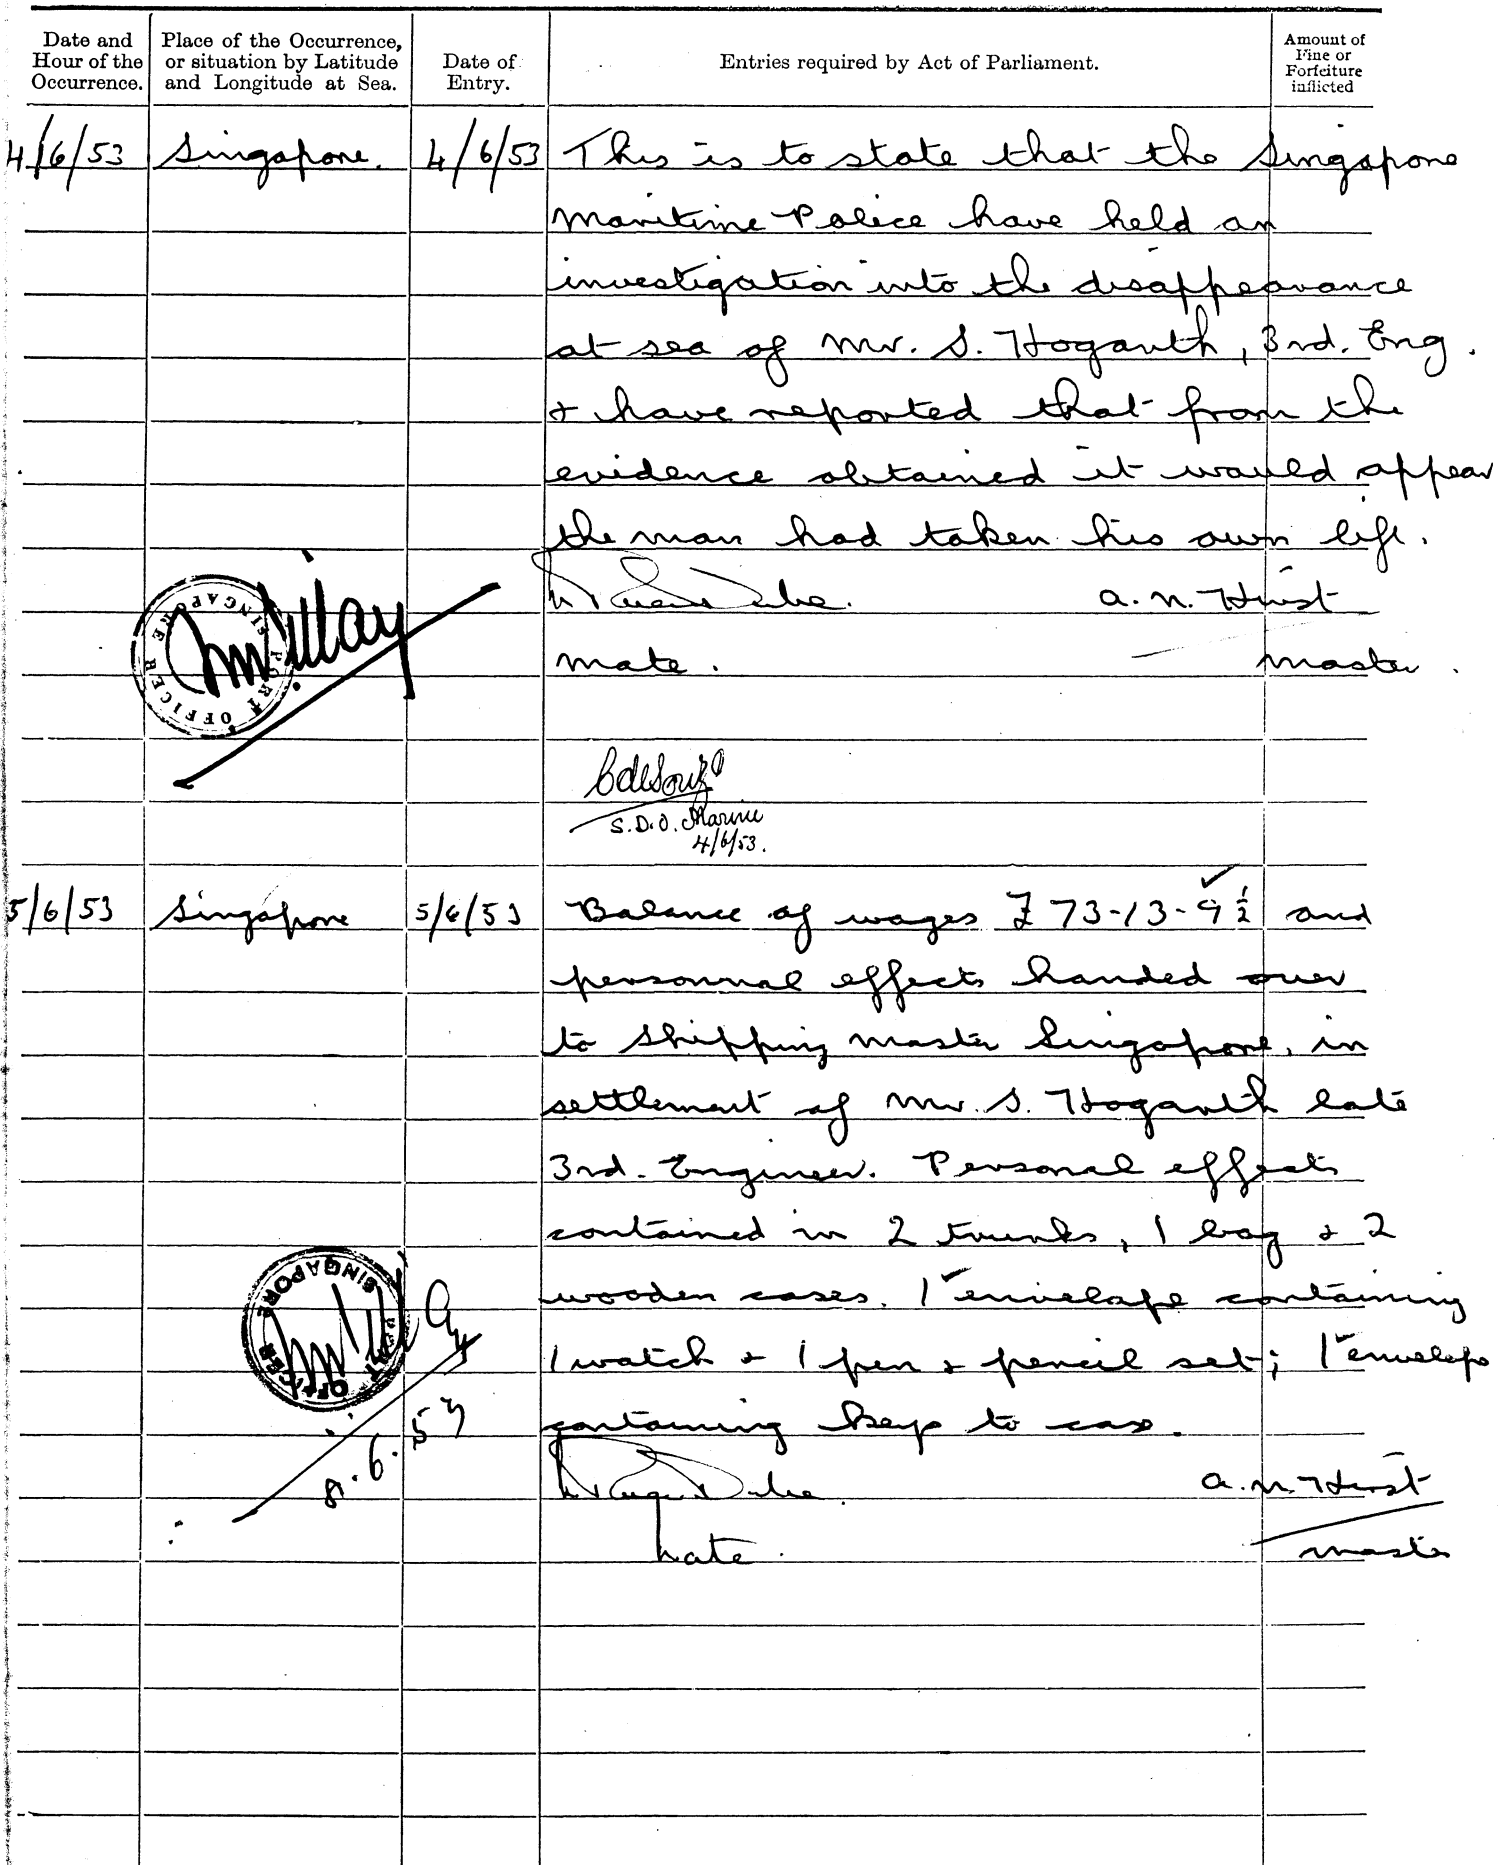 Date and Hour of the Occurrence.
Place of the Occurrence, or situation by Latitude and Longitude at Sea.
Date of Entry.
Entries required by Act of Parliament.
Amount of Fine or Forfeiture inflicted
4/6/53 Singapore. 4/6/53 This is to state that the Singapore
Maritime Police have held an
investigation into the disappearance
at sea of Mr. S. Hogarth, 3rd. Eng.
+ have reported that from the
evidence obtained it would appear
the man had taken his own life.
A. N. Hirst
Mate. Master.
PORT OFFICER SINGAPORE
C de Souza
S.D.O. Marine
4/6/53.
5/6/53 Singapore 5/6/53 Balance of wages £ 73-13-9½ and
personnal effects handed over
to Shipping Master Singapore, in
settlement of Mr. S. Hogarth late
3rd. Engineer. Personal effects
contained in 2 trunks, 1 bag + 2
wooden cases. 1 envelope containing
1 watch + 1 pen + pencil set; 1 envelope
containing keys to case.
PORT OFFICER SINGAPORE
8.6.53
A. N. Hirst
Mate. Master